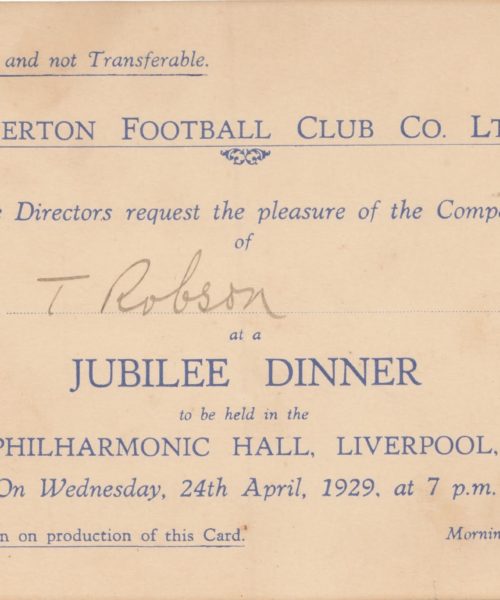 and not Transferable.
ERTON FOOTBALL CLUB CO. LT
Directors request the pleasure of the Comp
of
T Robson
at a
JUBILEE DINNER
to be held in the
PHILHARMONIC HALL, LIVERPOOL,
On Wednesday, 24th April, 1929, at 7 p.m.
n on production of this Card.
Mornin